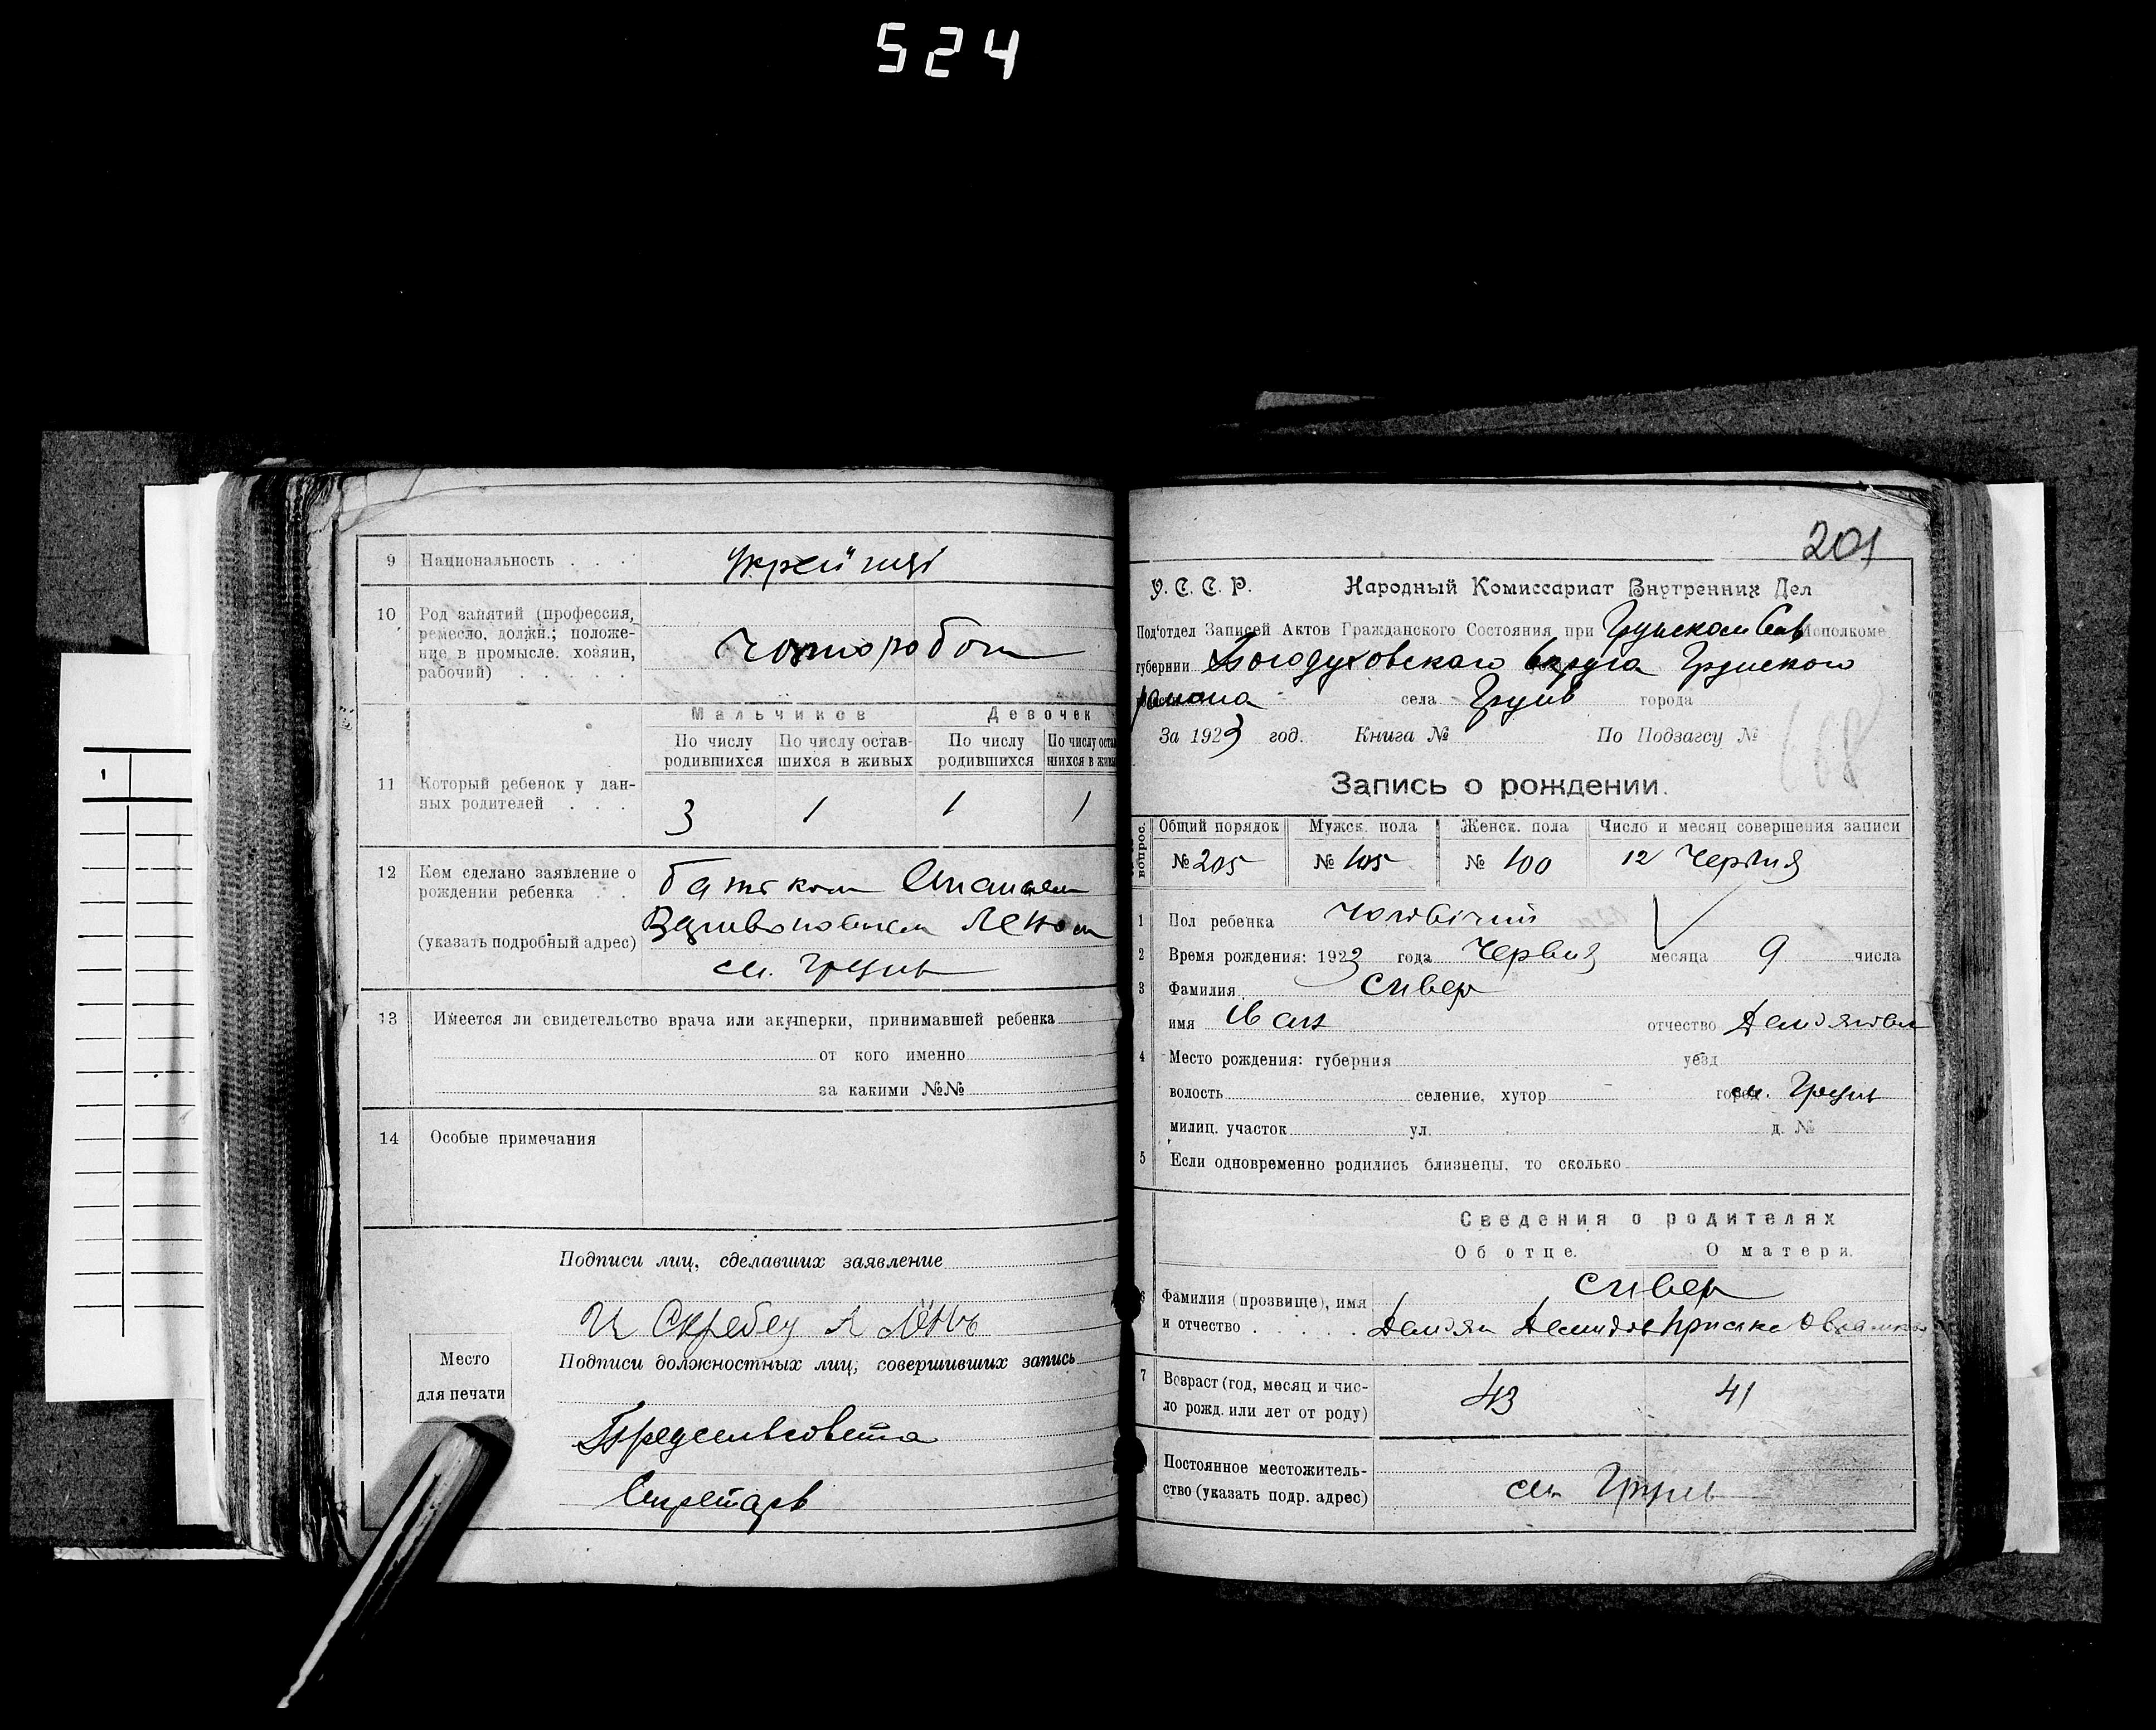 524
9 Национальность . . . Украінці
10 Род занятий (профессия,
ремесло, должн.; положе-
ние в промысле. хозяин,
рабочий) . . . . . Хлібороб
11 Который ребенок у дан-
ных родителей . . .
Мальчиков Девочек
По числу родившихся
По числу остав-шихся в живых
По числу родившихся
По числу оста
шихся в живы
3 1 1 1
12 Кем сделано заявление о
рождении ребенка . .
(указать подробный адрес)
батьком
сл. Грунь
13 Имеется ли свидетельство врача или акушерки, принимавшей ребенка
от кого именно
за какими №№
14 Особые примечания
Подписи лиц, сделавших заявление
И Скребец
Подписи должностных лиц, совершивших запись
Место
для печати
Предсельсовета
Секретарь
201
У. С. С. Р. Народный Комиссариат Внутренних Дел
Под'отдел Записей Актов Гражданского Состояния при Исполкоме
губернии Богодуховскаго округа Грунского
района села Грунь города
За 1923 год. Книга № По Подзагсу № 68
Запись о рождении.
№ вопрос.
Общий порядок Мужск. пола Женск. пола Число и месяц совершения записи
№ 205 № 105 № 100 12 Червня
1 Пол ребенка чоловічий
2 Время рождения: 1923 года Червня месяца 9 числа
3 Фамилия Сивер
имя Иван отчество Демянов
4 Место рождения: губерния уезд
волость селение, хутор город сл. Грунь
милиц. участок ул. д. №
5 Если одновременно родились близнецы, то сколько
Сведения о родителях
Об отце. О матери.
Сивер
6 Фамилия (прозвище), имя
и отчество . . . . . Демян Демидов Приська
7 Возраст (год, месяц и чис-
ло рожд. или лет от роду) 43 41
Постоянное местожитель-
ство (указать подр. адрес) сл. Грунь